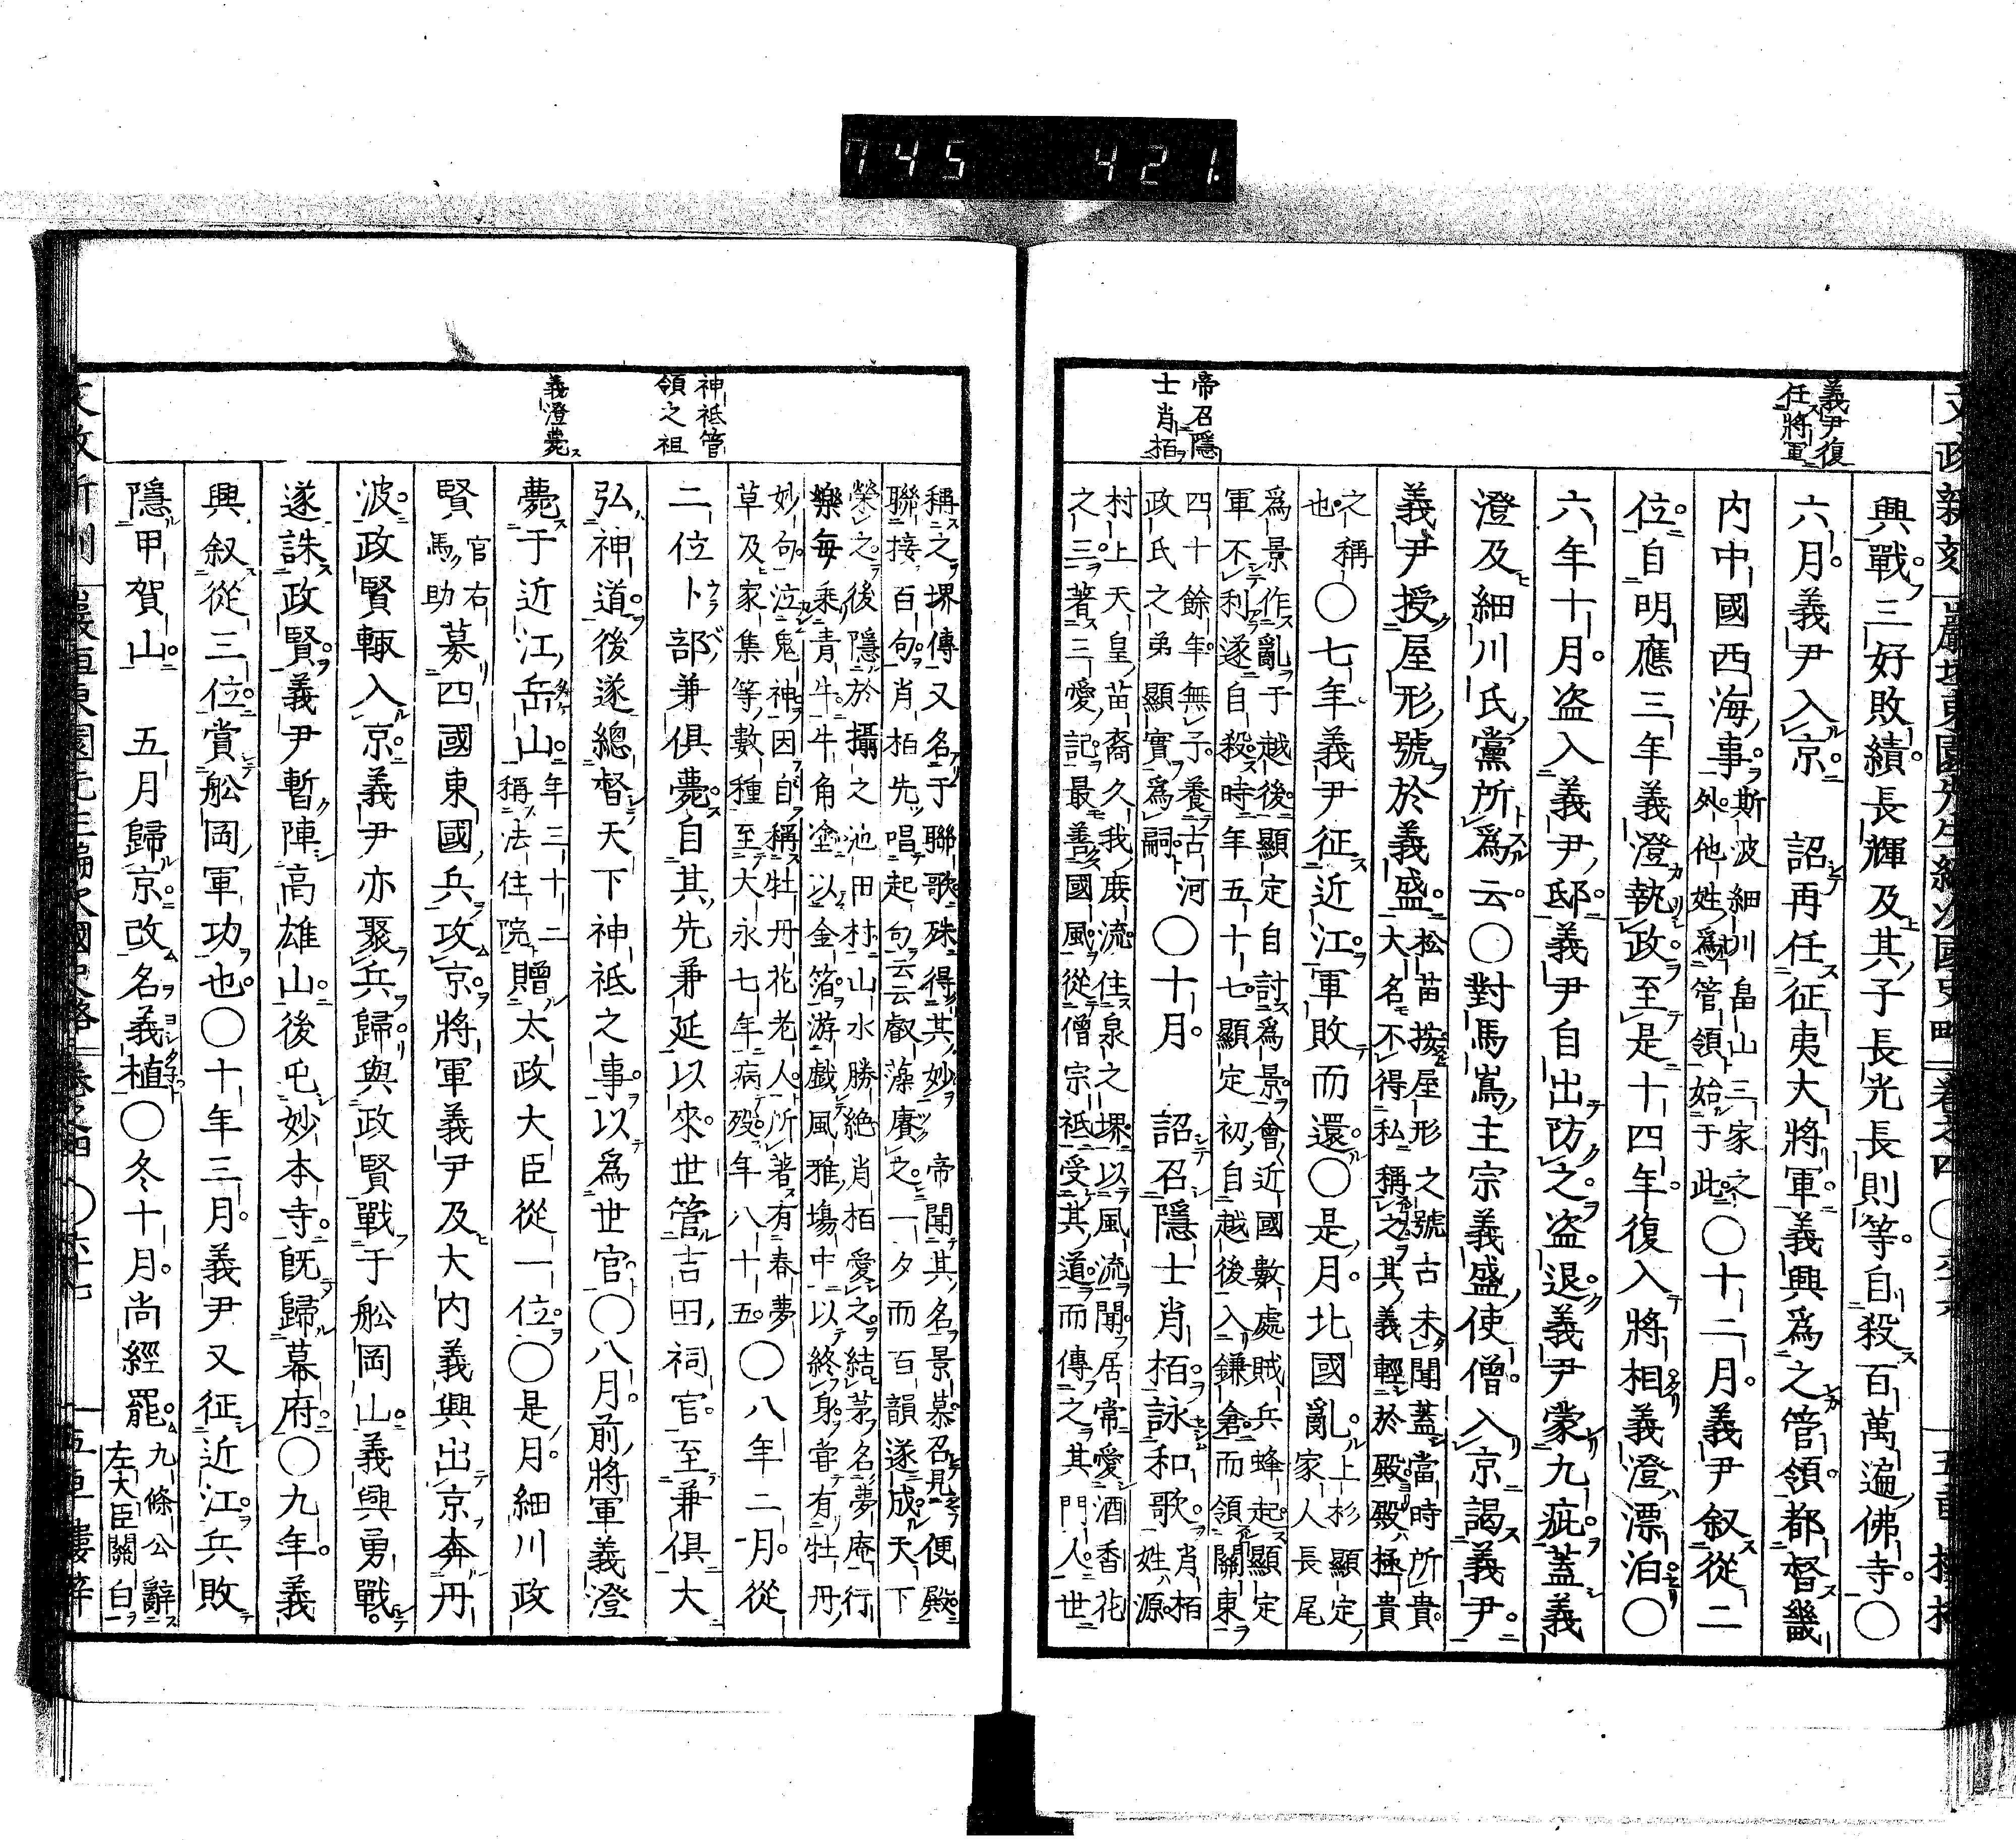 745 421.
義尹復
任將軍
帝召隱
士肖栢
興戰三好敗績長輝及其子長光長則等自殺百萬遍佛寺〇
六月義尹入京　詔再任征夷大將軍義興爲之管領都督畿
内中國西海事斯波細川畠山三家之
外他姓爲管領始于此〇十二月義尹叙從二
位自明應三年義澄執政至是十四年復入將相義澄漂泊〇
六年十月盜入義尹邸義尹自出防之盜退義尹蒙九疵蓋義
澄及細川氏黨所爲云〇對馬嶌主宗義盛使僧入京謁義尹
義尹授屋形號於義盛松苗按屋形之號古未聞蓋當時所貴
大名不得私稱之其義輕於殿殿極貴
之稱
也〇七年義尹征近江軍敗而還〇是月北國亂上杉顯定
家人長尾
爲景作亂于越後顯定自討爲景會近國數處賊兵蜂起顯定
軍不利遂自殺時年五十七顯定初自越後入鎌倉而領關東
四十餘年無子養古河
政氏之弟顯實爲嗣〇十月　詔召隱士肖栢詠和歌肖栢
姓源
村上天皇苗裔久我庶流住泉之堺以風流聞居常愛酒香花
之三著三愛記最善國風從僧宗祇受其道而傳之其門人世
神祗管
領之祖
義澄薨
稱之堺傳又名于聯歌殊得其妙　帝聞其名景慕召見便殿
聯接百句肖栢先唱起句云云叡藻賡之一夕而百韻遂成天下
榮之後隱於攝之池田村山水勝絶肖栢愛之結茅名夢庵行
樂每乘青牛牛角塗以金箔游戲風雅塲中以終身嘗有牡丹
妙句泣鬼神因自稱牡丹花老人所著有春夢
草及家集等數種至大永七年病歿年八十五〇八年二月從
二位卜部兼俱薨自其先兼延以來世管吉田祠官至兼俱大
弘神道後遂總督天下神祗之事以爲世官〇八月前將軍義澄
薨于近江岳山年三十二
稱法住院贈太政大臣從一位〇是月細川政
賢官右
馬助募四國東國兵攻京將軍義尹及大内義興出京奔丹
波政賢輙入京義尹亦聚兵歸與政賢戰于舩岡山義興勇戰
遂誅政賢義尹暫陣高雄山後屯妙本寺既歸幕府〇九年義
興叙從三位賞舩岡軍功也〇十年三月義尹又征近江兵敗
隱甲賀山　五月歸京改名義植〇冬十月尚經罷九條公辭
左大臣關白